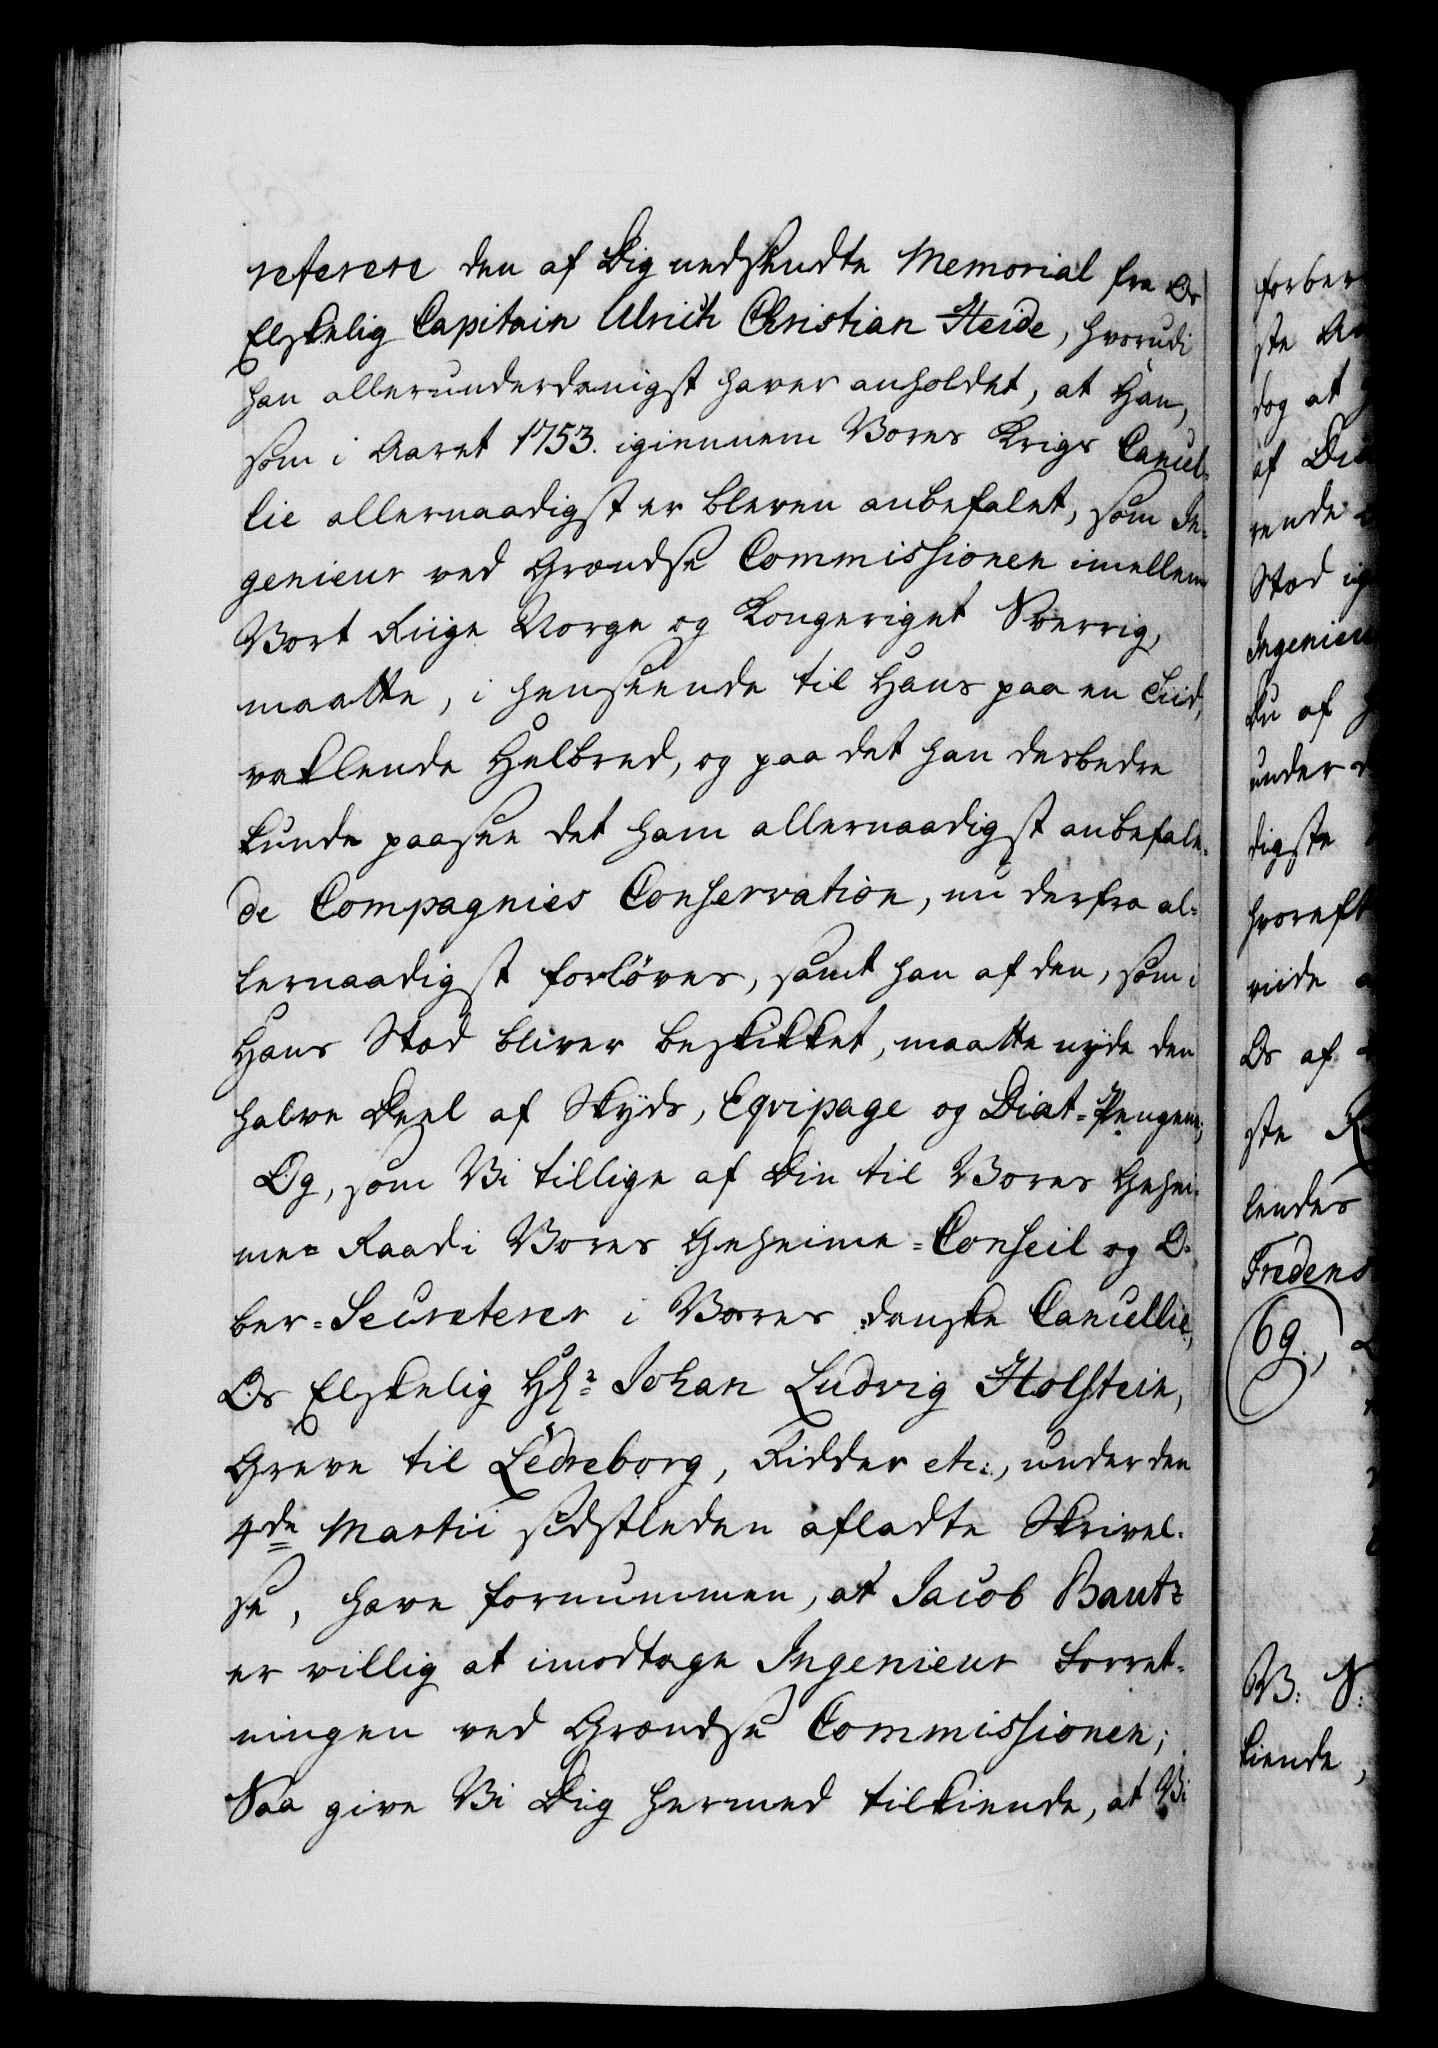 referere den af Dig nedsendte Memorial fra Os
Elskelig Capitain Ulrich Christian Heide, hvorudi
han allerunderdanigst haver anholdet, at Han,
som i Aaret 1753. igiennem Vores Krigs Cancel-
lie allernaadigst er bleven anbefalet, som In-
genieur ved Grændse Commissionen imellem
Vort Riige Norge og Kongeriget Sverrig,
maatte, i henseende til Hans paa en Tiid,
vaklende Helbred, og paa det han desbedre
kunde paasee det ham allernaadigst anbefale-
de Compagnies Conservation, nu derfra al-
lernaadigst forløves, samt han af den, som i
Hans Stæd bliver beskikket, maatte nyde den
halve Deel af Skyds, Eqvipage og Diæt-Pengene;
Og, som Vi tillige af Din til Vores Gehei-
me= Raad i Vores Geheime=Conseil og O-
ber=Secreterer i Vores danske Cancellie,
Os Elskelig Hr. Johan Ludvig Holstein,
Greve til Ledreborg, Ridder etc:, under den
4de Martii sidstleden afladte Skrivel-
se, have fornummen, at Jacob Bautz
er villig at imodtage Ingenieur Forret-
ningen ved Grændse Commissionen;
Saa give Vi Dig hermed tilkiende, at Vi
forber
ste
dog at
af
rende
Stæd ig
Ingenieu
Du af
under
digste
hvoreft
viide
Os af
ste
lendes
Fredens
69.
V: S:
kiende,